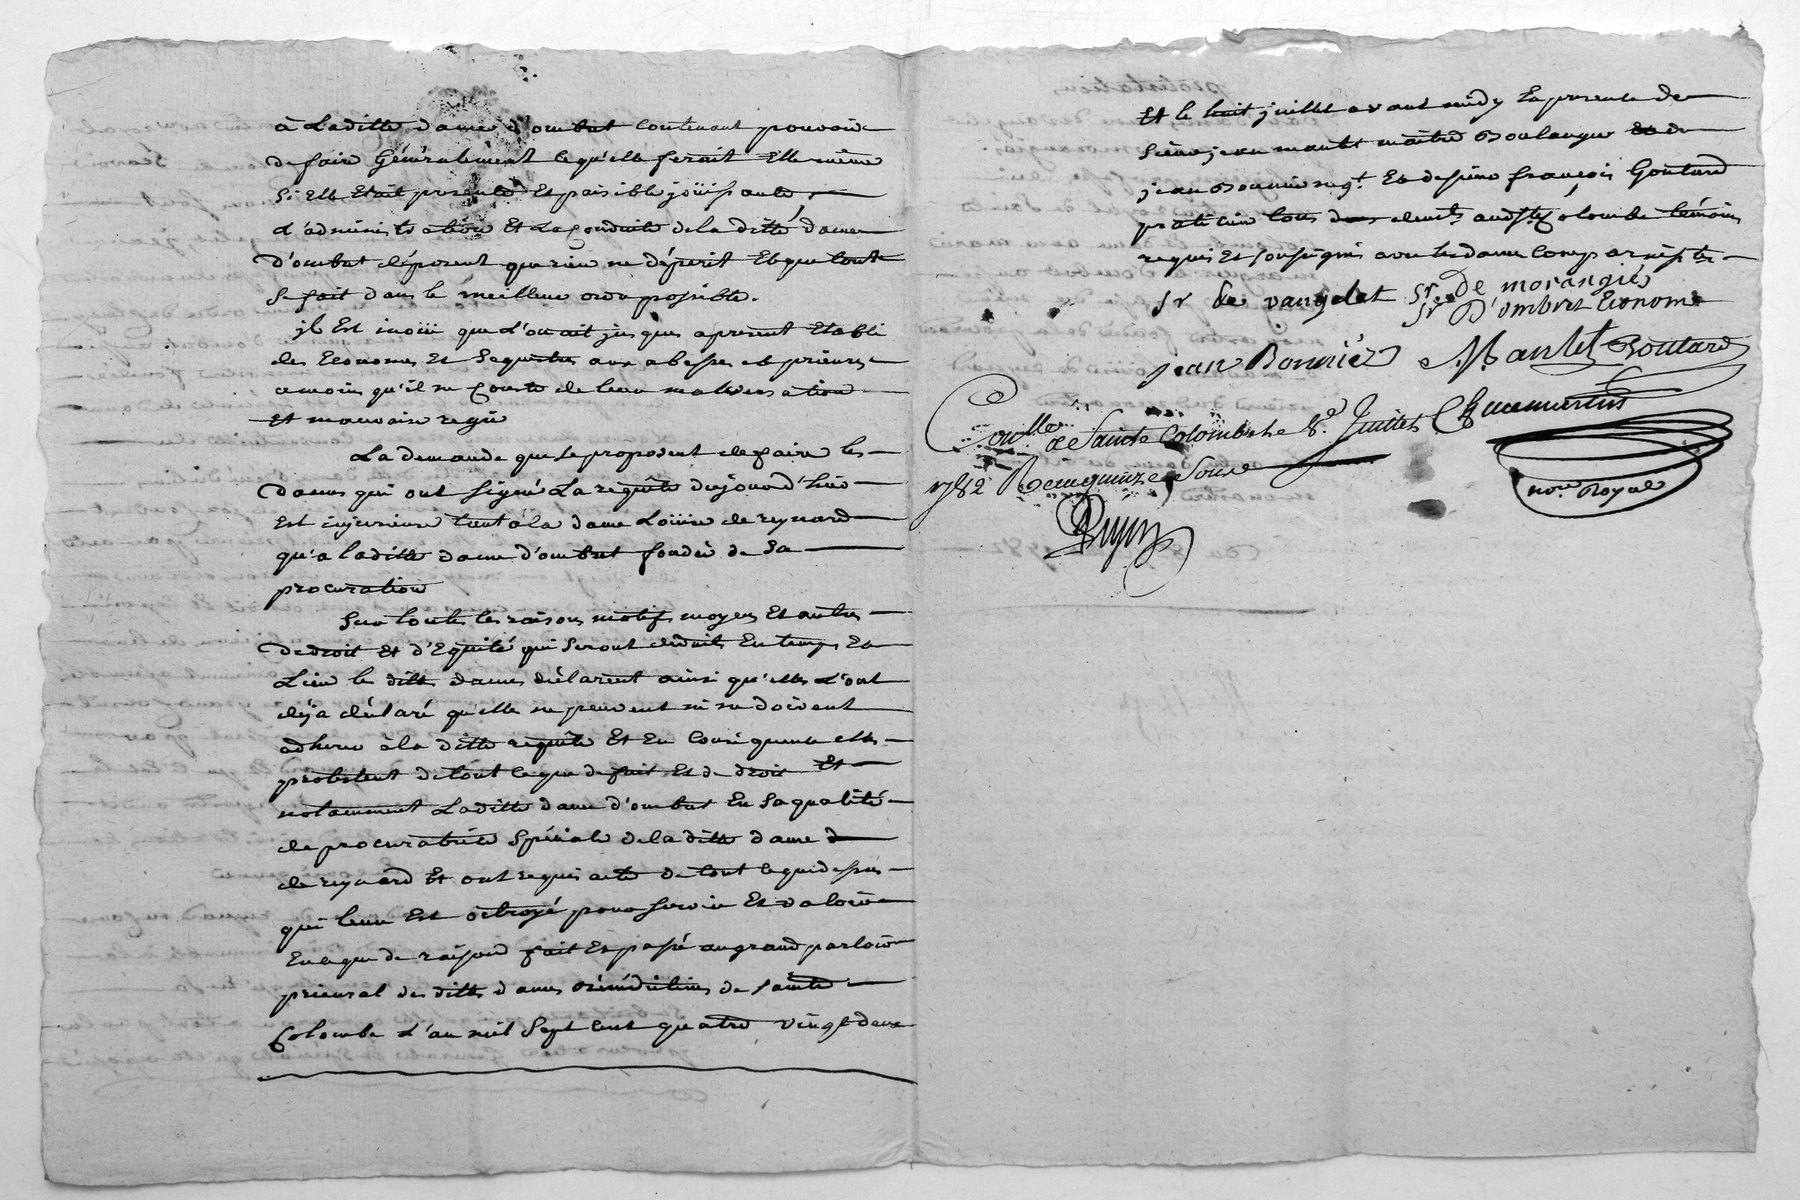 à Laditte dame d'ombret contenant pouvoir
de faire Généralement ce qu'elle feroit Elle même
si elle Etait presente Et paisible joüissante,
L'administration Et La Conduite de la ditte dame
d'ombret déposent que rien ne déperit Et que tout
se fait dans le meilleur ordre possible.
jl Est inoüi que L'on ait jus ques apresent Etabli
des Economes Et sequestre aux abesses et prieures
amoins qu'il ne Conste de leur malversation
Et mauvaise regie
La demande que se proposent de faire les
dames qui ont signé La requête dujourd'hui
est injurieuse tant à la dame Loüise de reynard
qu'a laditte dame d'ombret fondée de Sa
procuration
Sur toutes les raisons motifs moyens Et autres
de droit Et d'Equité qui seront déduits En temps Et
Lieu les dittes dames déclarent ainsi qu'elles L'ont
déja déclaré qu'elles ne peuvent ni ne doivent
adherer à la ditte requête Et En Consequence elles
protestent de tout ce que de fait Et de droit Et
notamment Laditte dame d'ombret En Sa qualité
de procuratrice Spéciale de la ditte dame
de reynard Et ont requis acte de tout ce que dessus
qui leur Est octroyé pour servir Et valoir
En ce que de raison fait Et passé au grand parloir
prieural des dittes dames Bénédictines de sainte
Colombe L'an mil Sept cent quatre vingt deux
Et le huit juillet avant midy En presence de
Sieur jean mantet maître Boulanger
jean Bonnie Et de sieur françois Goutard
praticien tous audt. Ste. Colombe témoins
requis Et soussignés avec les dames Comparaissantes
sr de vangelet sr. De morangiés
sr. D'ombret Econome
jean Bonnie Mantet Goutard
Conllé. a Sainte Colombe le 8e. Juillet Chaumartin
1782 Recu quinze Sous
nore. Royal